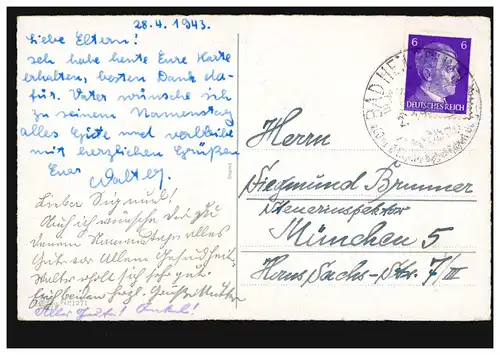 28.4.1943.
Liebe Eltern!
Ich habe heute Eure Karte
erhalten, besten Dank da-
für. Vater wünsche ich
zu seinem Namenstag
alles Gute und verbleibe
mit herzlichen Grüßen
Euer
Walter.
Lieber Sigmund!
Auch ich wünsche dir zu
deinem Namenstage alles
Gute vor Allem Gesundheit,
Walter erholt sich sehr gut.
herzl. Grüße Mutter
Alles Gute! Onkel!
6 6
DEUTSCHES REICH
BAD
Herrn
Siegmund Brunner
Steuerinspektor
München 5
Hans Sachs-Str. 7/III